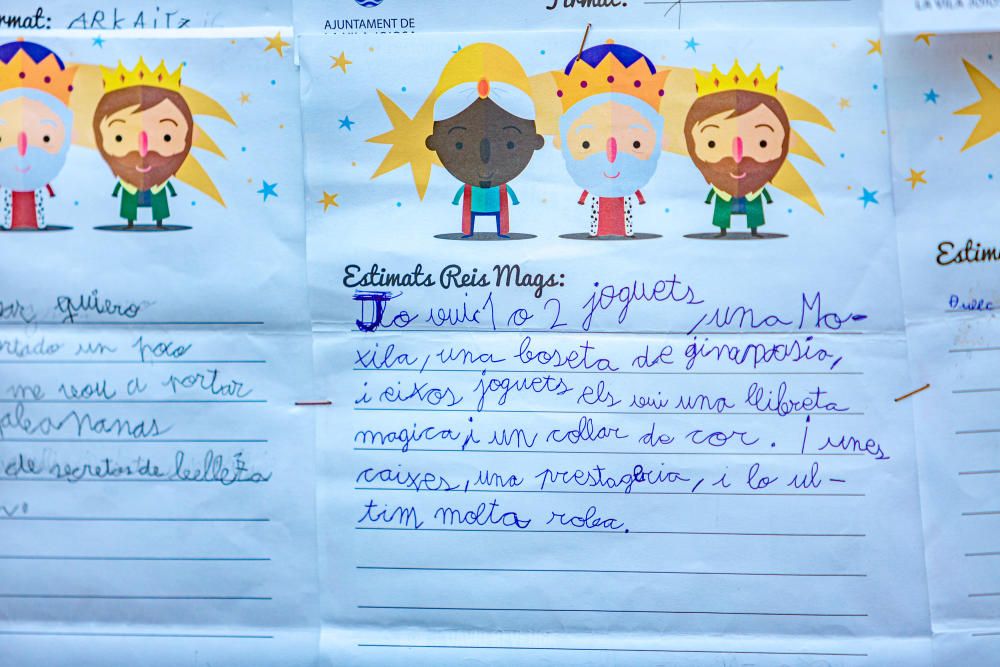 Firmat: ARKAITZ
AJUNTAMENT DE
LA VILA JOIOSA
Firmat:
LA VILA JOIOSA
quiero
un poco
me vou a portar
de secretos de belleza
Estimats Reis Mags:
Jo vuic 1 o 2 joguets, una Mo-
xila, una boseta de ginapasia,
i eixos joguets els vui una llibreta
magica, i un collar de cor. i unes
caixes, una prestagberia, i lo ul-
tim molta roba.
Estim